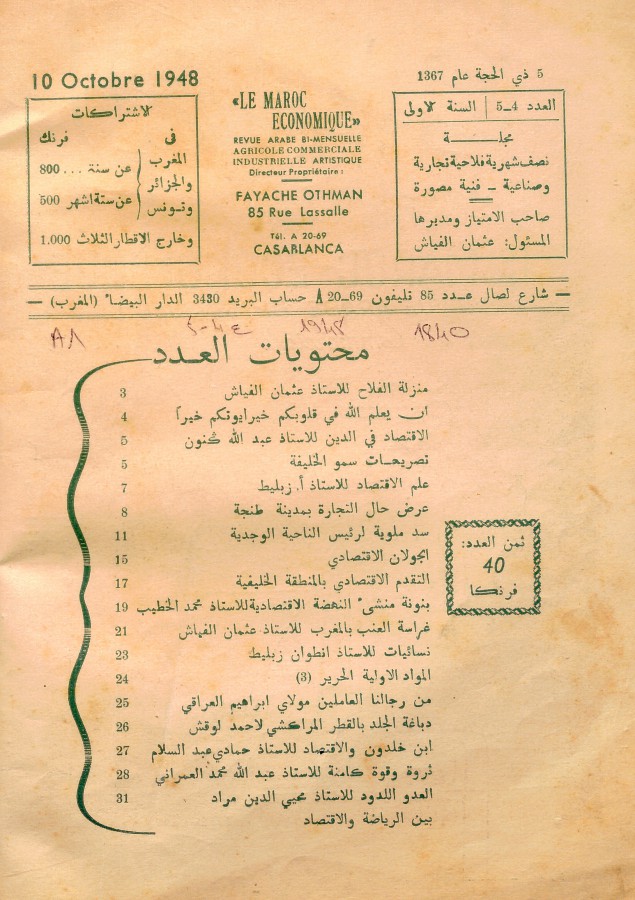 5 ذي الحجة عام 1367
العدد 4_5 | السنة الاولى
مجلــــة
نصف شهرية فلاحية تجارية
وصناعية _ فنية مصورة
صاحب الامتياز ومديرها
المسئول: عثمان الفياش
«LE MAROC
ECONOMIQUE»
REVUE ARABE BI-MENSUELLE
AGRICOLE COMMERCIALE
INDUSTRIELLE ARTISTIQUE
Directeur Propriétaire :
FAYACHE OTHMAN
85 Rue Lassalle
Tél. A 20-69
CASABLANCA
10 Octobre 1948
الاشتراكات
في فرنك
المغرب عن سنة ... 800
والجزائر
وتونس عن ستة اشهر 500
وخارج الاقطار الثلاث 1.000
— شارع لصال عـدد 85 تليفون 69–20 A حساب البريد 3430 الدار البيضاء (المغرب) —
A1 5-4 ع 1948 1840
محتويات العدد
منزلة الفلاح للاستاذ عثمان الفياش 3
ان يعلم الله في قلوبكم خيرا يوتكم خيراً 4
الاقتصاد في الدين للاستاذ عبد الله گنون 5
تصريحات سمو الخليفة 5
علم الاقتصاد للاستاذ أ. زبليط 7
عرض حال التجارة بمدينة طنجة 8
سد ملوية لرئيس الناحية الوجدية 11
الجولان الاقتصادي 15
التقدم الاقتصادي بالمنطقة الخليفية 17
بنونة منشىء النهضة الاقتصادية للاستاذ محمد الخطيب 19
غراسة العنب بالمغرب للاستاذ عثمان الفياش 21
نسائيات للاستاذ انطوان زبليط 23
المواد الاولية الحرير (3) 24
من رجالنا العاملين مولاي ابراهيم العراقي 25
دباغة الجلد بالقطر المراكشي لاحمد لوقش 26
ابن خلدون والاقتصاد للاستاذ حمادي عبد السلام 27
ثروة وقوة كامنة للاستاذ عبد الله محمد العمراني 28
العدو اللدود للاستاذ محيي الدين مراد 31
بين الرياضة والاقتصاد
ثمن العدد:
40
فرنكا